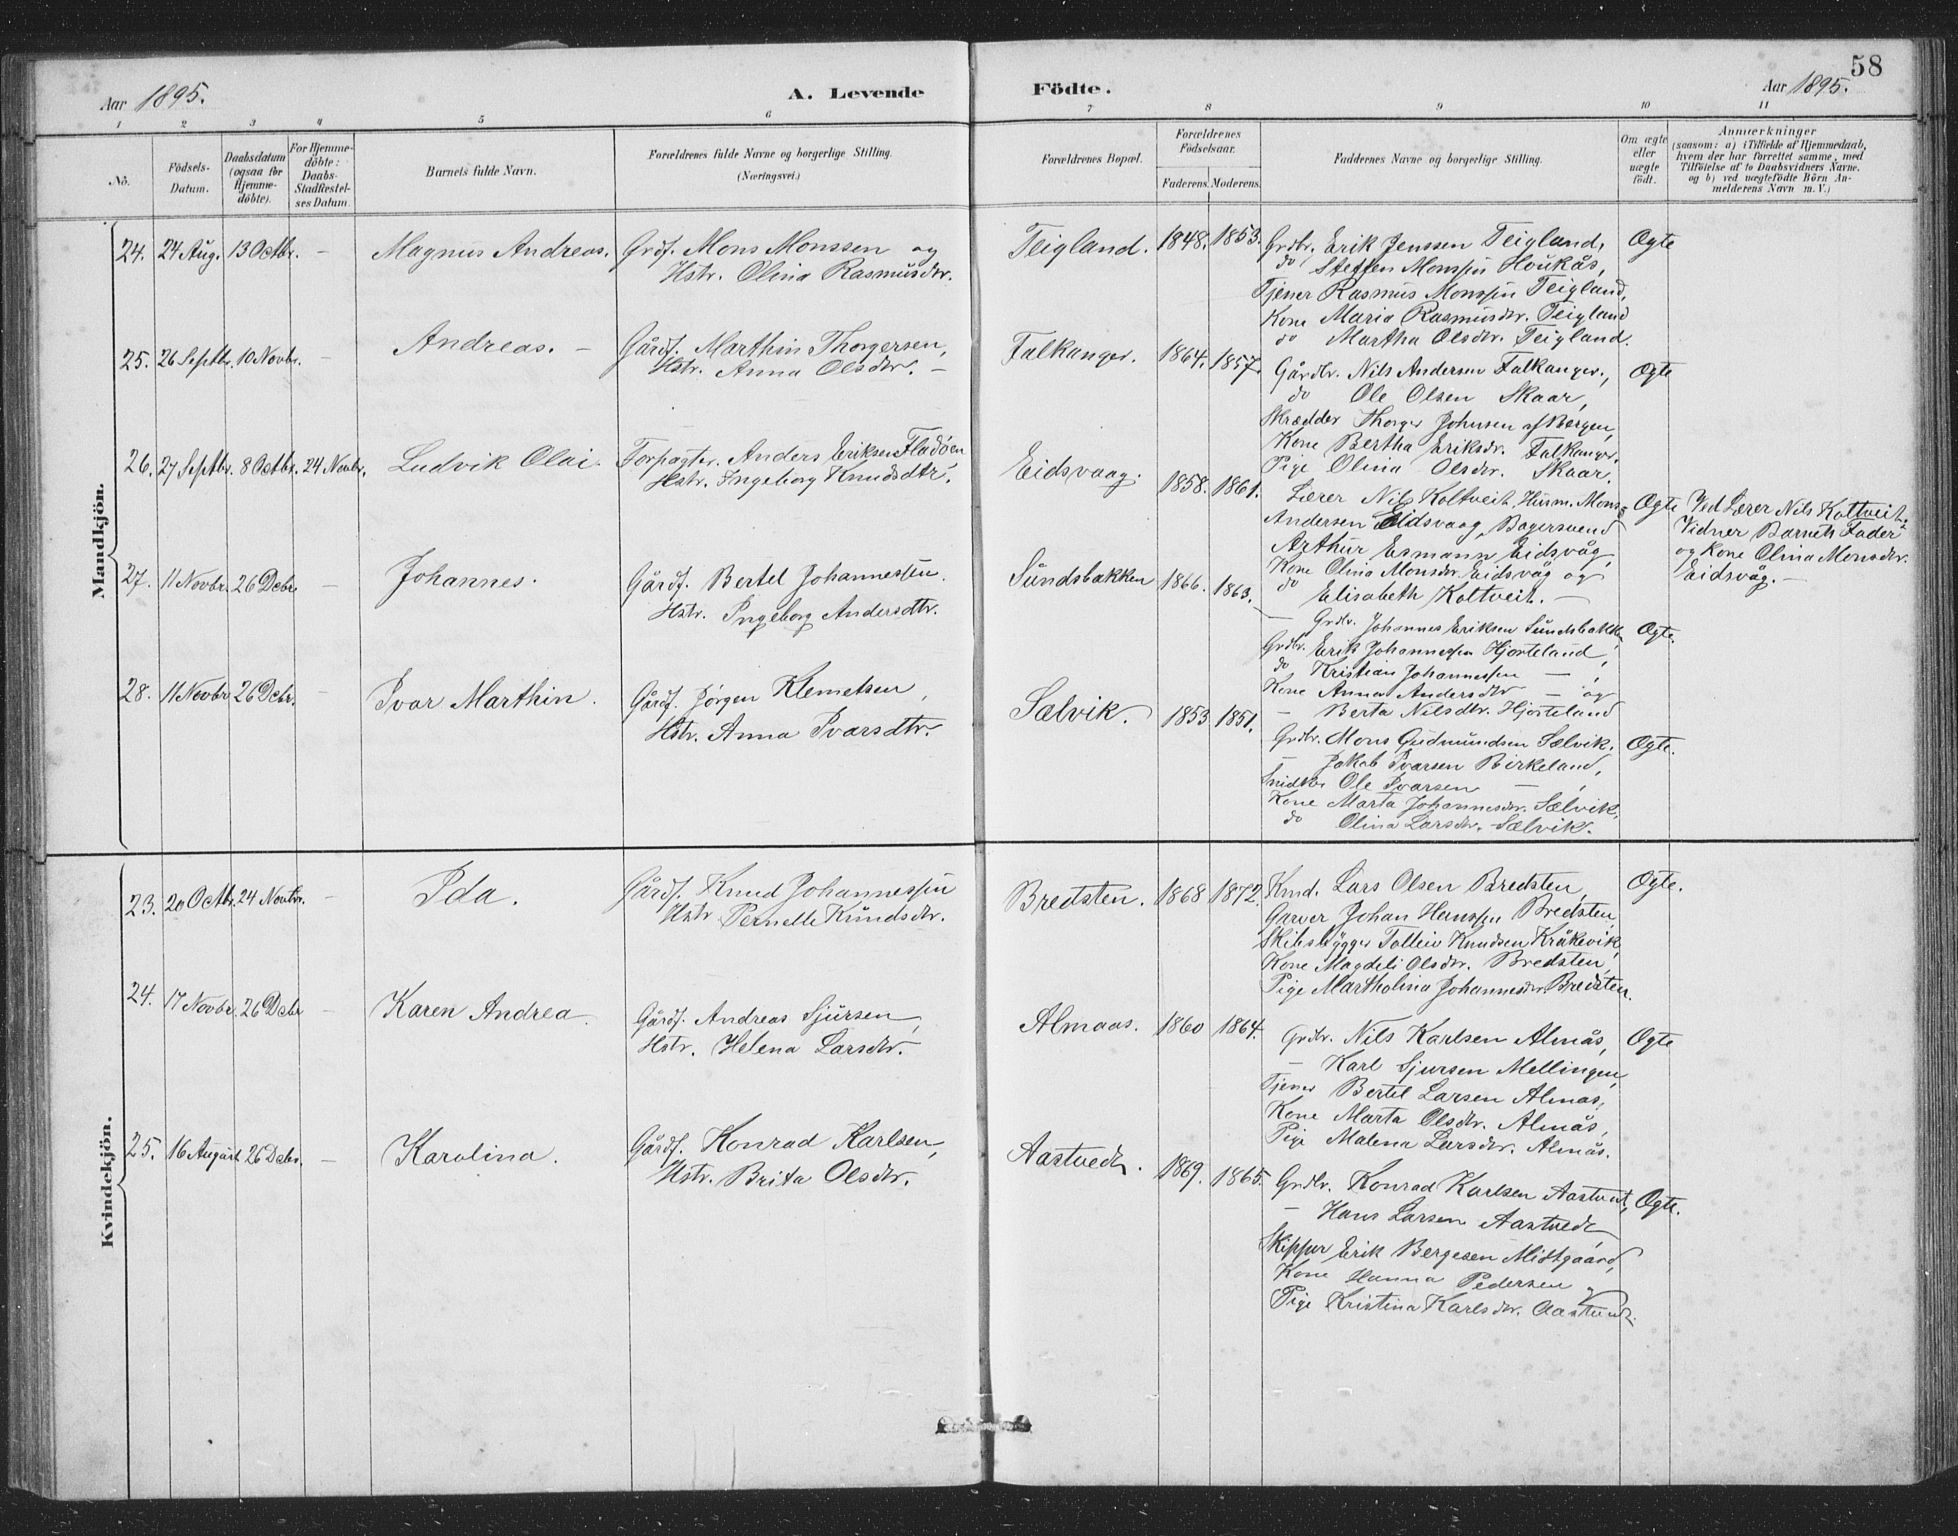 58
Aar 1895.
A. Levende
Födte.
Aar 1895.
1 2 3 4 5 6 7 8 9 10 11
No.
Födsels-
Datum.
Daabsdatum
(ogsaa for
Hjemme-
döbte).
For Hjemme-
döbte:
Daabs-
Stadfæstel-
ses Datum.
Barnets fulde Navn.
Forældrenes fulde Navne og borgerlige Stilling.
(Næringsvei.)
Forældrenes Bopæl.
Forældrenes
Födselsaar.
Faderens. Moderens.
Faddernes Navne og borgerlige Stilling.
Om ægte
eller
uægte
födt.
Anmærkninger
(saasom: a) i Tilfælde af Hjemmedaab,
hvem der har forrettet samme, med
Tilföielse af to Daabsvidners Navne.
og b) ved uægtefödte Börn An-
melderens Navn m. V.)
Mandkjön.
24. 24 Aug. 13 Octbr. – Magnus Andreas. Grdf. Mons Monssen og
Hstr. Olina Rasmusdr.
Teigland. 1848. 1853.
Grdbr. Erik Jenssen Teigland, Ægte
do Steffen Monssen Houkås,
Tjener Rasmus Monssen Teigland,
Kone Maria Rasmusdr. Teigland
do Martha Olsdr. Teigland.
25. 26 Septbr. 10 Novbr. – Andreas. – Gårdf. Marthin Thorgersen,
Hstr. Anna Olsdtr. –
Falkanger. 1864. 1857.
Gårdbr. Nils Andersen Falkanger, Ægte
do Ole Olsen Skaar,
Skrædder Thorger Johnsen af Bergen,
Kone Bertha Eriksdr. Falkanger.
Pige Olina Olsdr. Skaar.
26. 27 Septbr. 8 Octbr. 24 Novbr. Ludvik Olai. Forpagter. Anders Eriksen Fladöen
Hstr. Ingeborg Knudsdtr.
Eidsvaag. 1858. 1861.
Lærer Nils Koltveit, Husm. Mons Ægte
Andersen Eidsvaag, Bagersvend
Arthur Esmann Eidsvåg,
Kone Olina Monsdr Eidsvåg og
do Elisabeth Koltveit. –
Ved Lærer Nils Koltveit.
Vidner Barnets Fader
og Kone Olina Monsdr.
Eidsvåg. –
27. 11 Novbr. 26 Debr. – Johannes. Gårdf. Bertel Johannessen.
Hstr. Ingeborg Andersdtr.
Sundsbakken 1866. 1863.
– Grdbr. Johannes Eriksen Sundsbakk. Ægte.
Grdbr. Erik Johannessen Hjorteland,
do Kristian Johannessen – ,
Kone Anna Andersdtr – og
– Berta Nilsdtr. Hjorteland
28. 11 Novbr 26 Debr. – Ivar Marthin. Gårdf. Jörgen Klemetsen,
Hstr. Anna Ivarsdtr.
Sælvik. 1853 1851.
Grdbr. Mons Gudmundsen Sælvik. Ægte.
– Jakob Ivarsen Birkeland,
Snidker Ole Ivarsen – ,
Kone Marta Johannesdr. Sælvik,
do Olina Larsdr. Sælvik.
Kvindekjön.
23. 20 Octbr. 24 Novbr. – Ida. Gårdf. Knud Johannessen
Hstr. Pernelle Knudsdr.
Bredsten. 1868 1872.
Kmd. Lars Olsen Bredsten, Ægte.
Garver Johan Hanssen Bredsten,
Skibsbygger Tolleiv Knudsen Kråkevik,
Kone Magdeli Olsdr. Bredsten,
Pige Martholina Johannesdr. Bredsten.
24. 17 Novbr. 26 Debr – Karen Andrea. Gårdf. Andreas Sjursen,
Hstr. Helena Larsdtr.
Almaas. 1860 1864.
Grdbr. Nils Karlsen Almås, Ægte
– Karl Sjursen Mellingen,
Tjener Bertel Larsen Almås,
Kone Marta Olsdr. Almås,
Pige Malena Larsdr. Almås.
25. 16 August 26 Debr. – Karolina. Gårdf. Konrad Karlsen,
Hstr. Brita Olsdtr.
Aastvedt. 1869. 1865.
Grdbr. Konrad Karlsen Aastvedt, Ægte.
– Hans Larsen Aastvedt,
Skipper Erik Bergesen Midtgaard,
Kone Hanna Pedersen og
Pige Kristina Karlsdr. Aastvedt.